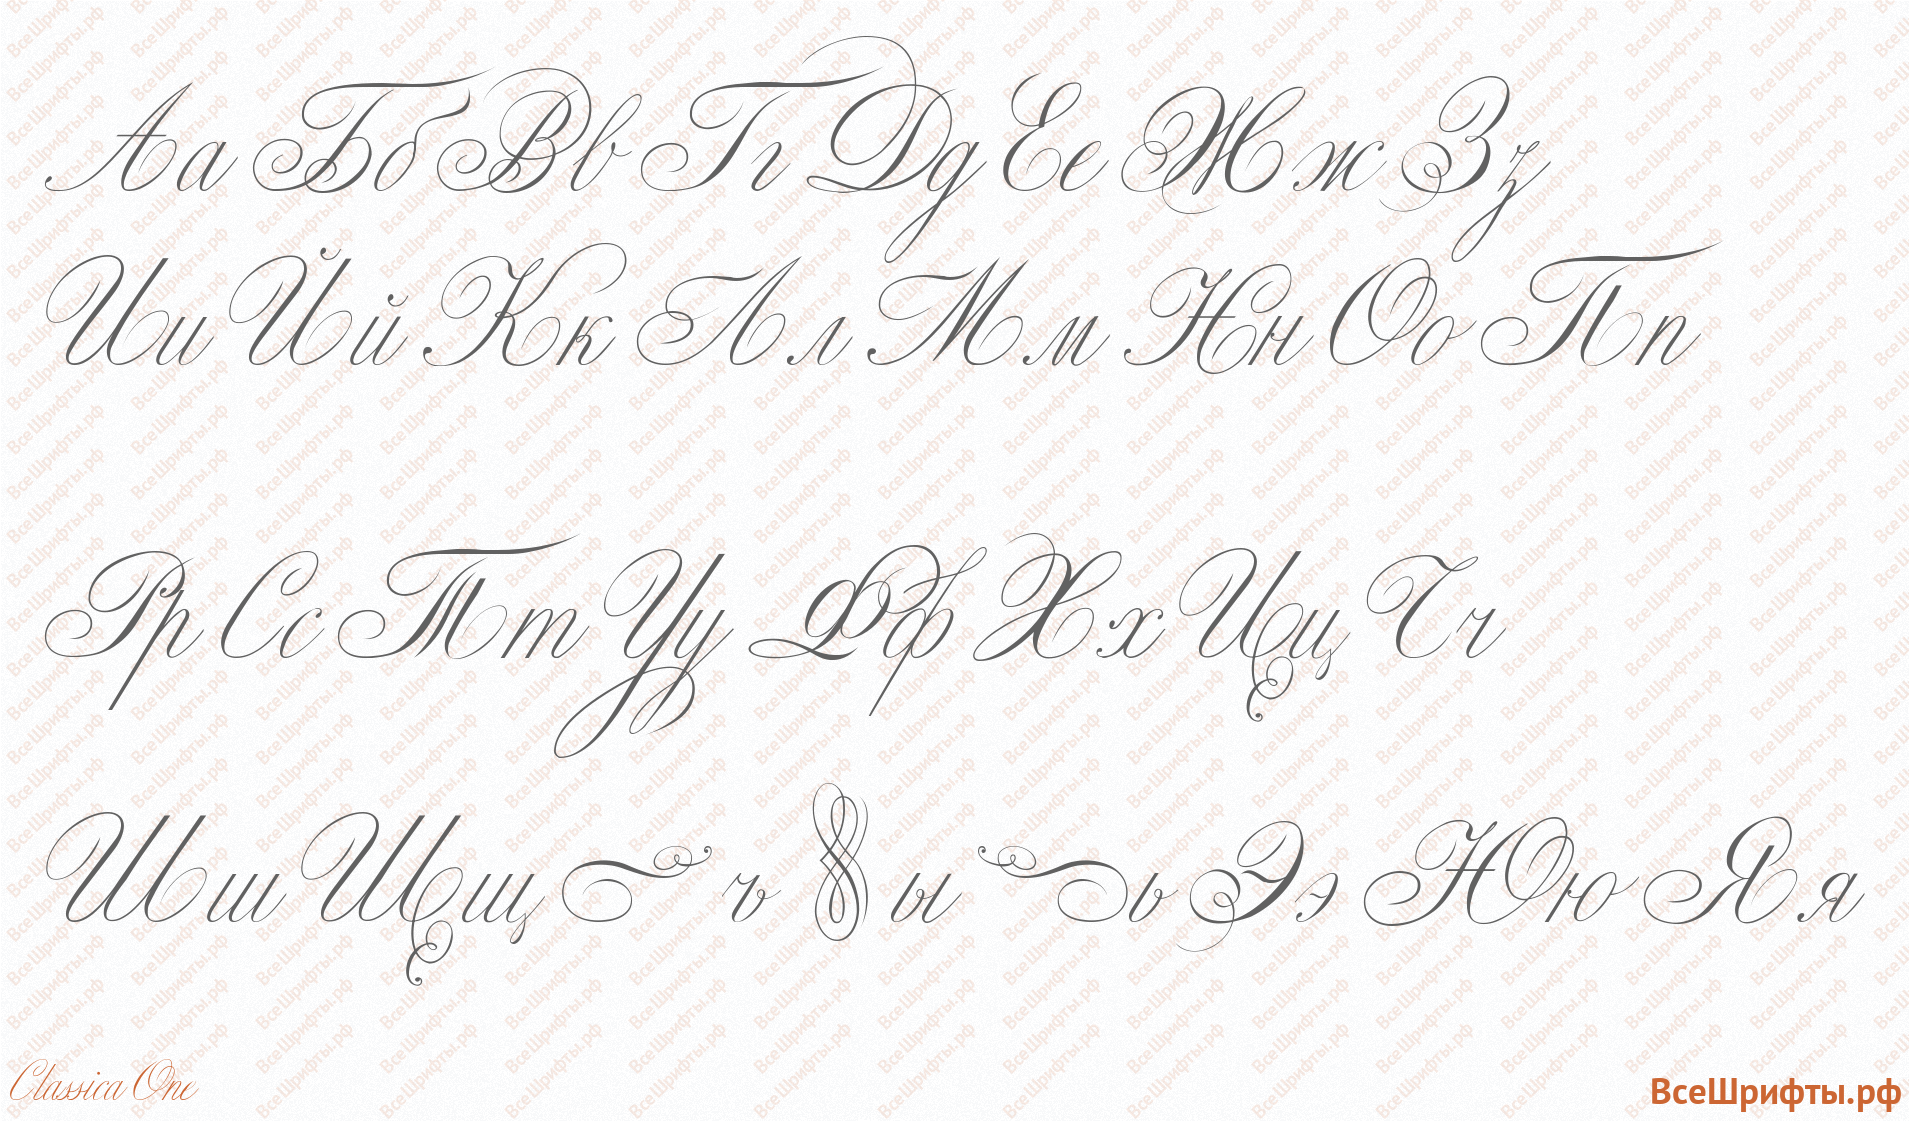 Аа Бб Вв Гг Дд Ее Жж Зз
Ии Йй Кк Лл Мм Нн Оо Пп
Рр Сс Тт Уу Фф Хх Цц Чч
Шш Щщ ъ ы ь Ээ Юю Яя
Classica One
ВсеШрифты.рф